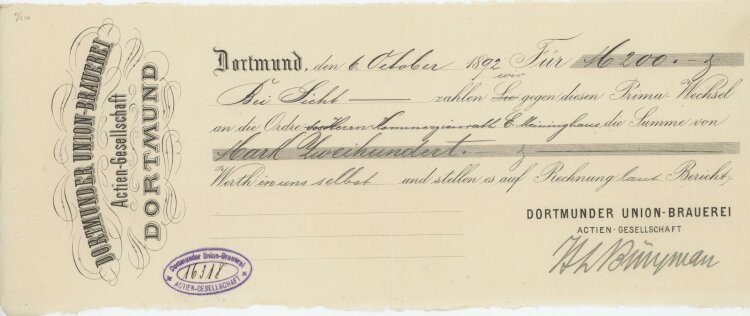 DORTMUNDER UNION-BRAUEREI
Actien-Gesellschaft
DORTMUND
Dortmund, den 6. October 1892 Für M 200.-
wir
Bei Sicht zahlen Sie gegen diesen Prima-Wechsel
an die Ordre des Herrn Kommerzienrath E. Möninghaus die Summe von
Mark Zweihundert.
Werth in uns selbst und stellen es auf Rechnung laut Bericht
DORTMUNDER UNION-BRAUEREI
ACTIEN-GESELLSCHAFT
Dortmunder Union-Brauerei
16318
ACTIEN-GESELLSCHAFT